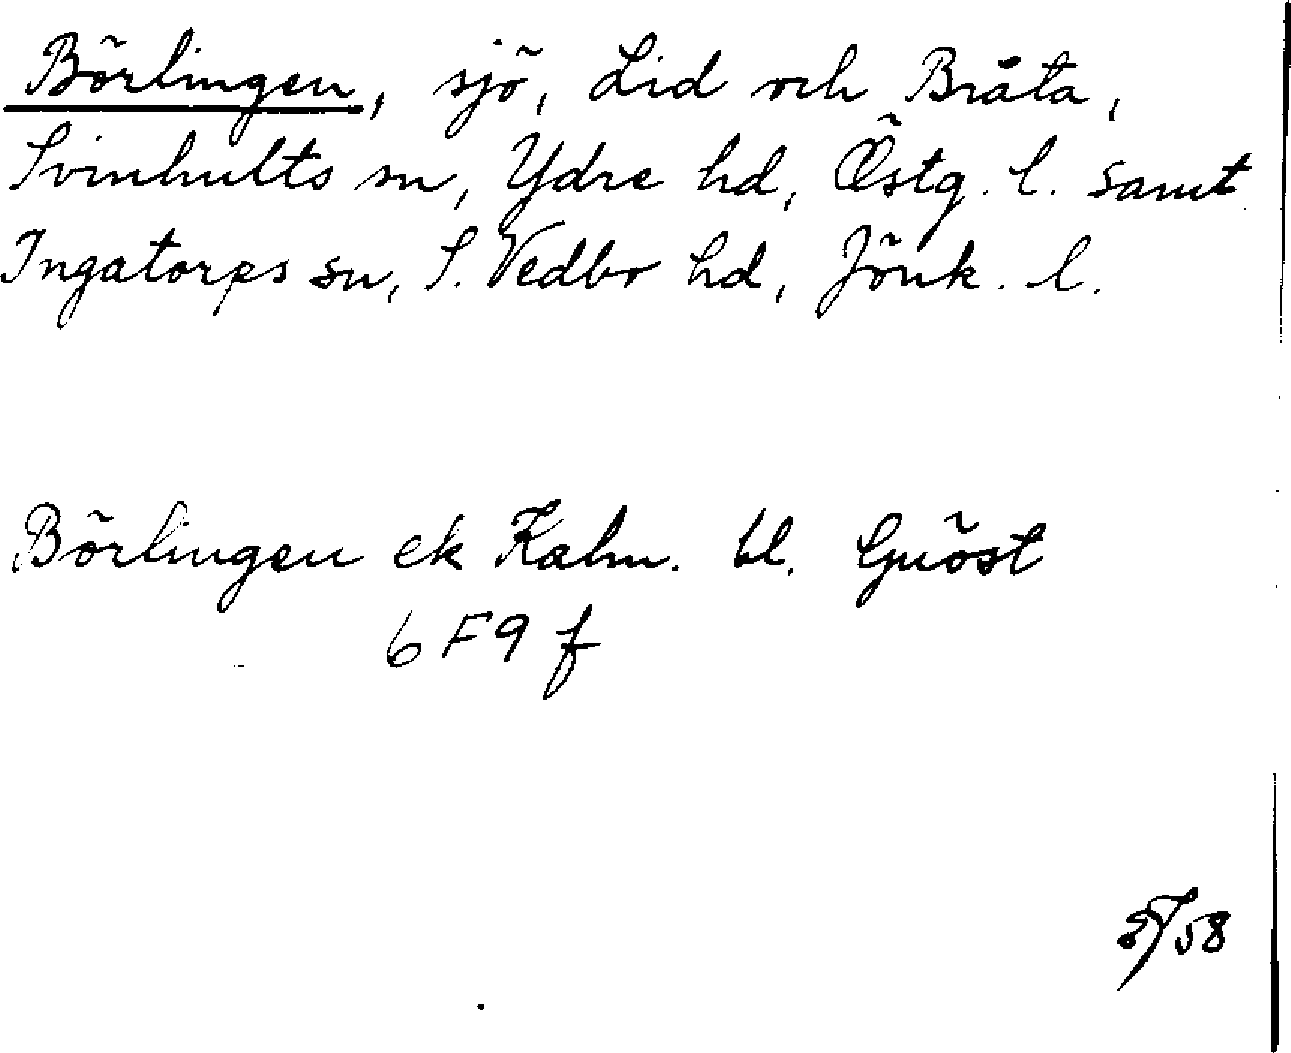 Börlingen, sjö, Lid och Bråta,
Svinhults sn, Ydre hd, Östg. l. samt
Ingatorps sn, S. Vedbo hd, Jönk. l.
Börlingen ek Kalm. bl. Gnöst
6 F 9 f
58